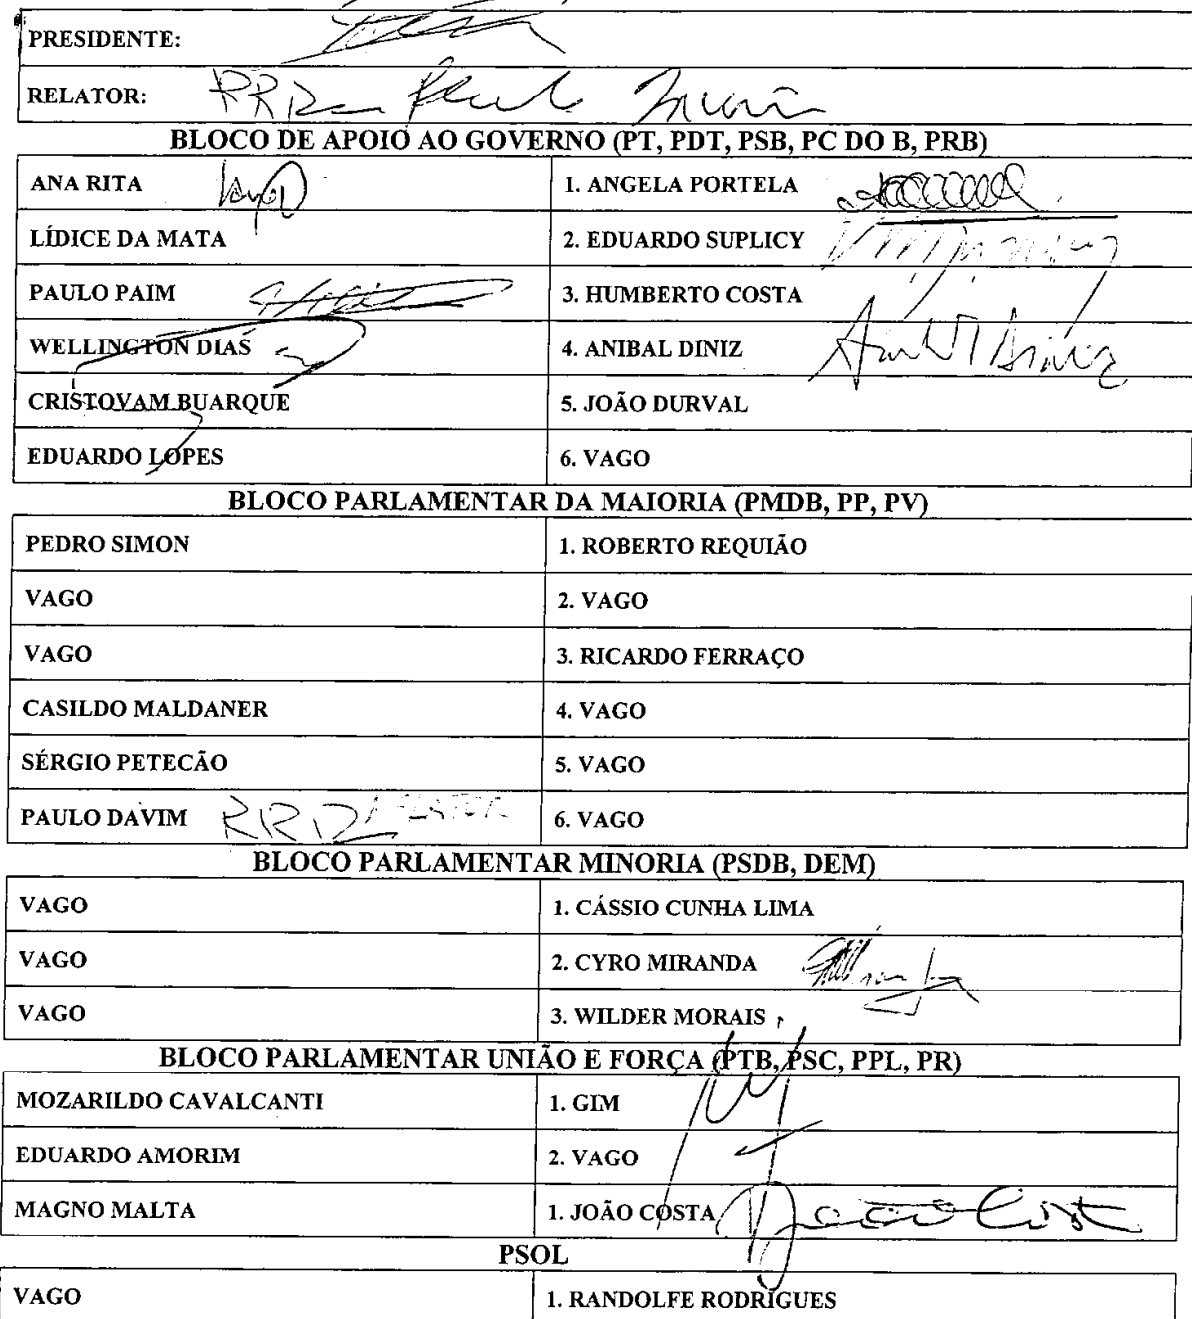 PRESIDENTE:
RELATOR:
BLOCO DE APOIO AO GOVERNO (PT, PDT, PSB, PC DO B, PRB)
ANA RITA 1. ANGELA PORTELA
LÍDICE DA MATA 2. EDUARDO SUPLICY
PAULO PAIM 3. HUMBERTO COSTA
WELLINGTON DIAS 4. ANIBAL DINIZ Anibal Diniz
CRISTOVAM BUARQUE 5. JOÃO DURVAL
EDUARDO LOPES 6. VAGO
BLOCO PARLAMENTAR DA MAIORIA (PMDB, PP, PV)
PEDRO SIMON 1. ROBERTO REQUIÃO
VAGO 2. VAGO
VAGO 3. RICARDO FERRAÇO
CASILDO MALDANER 4. VAGO
SÉRGIO PETECÃO 5. VAGO
PAULO DAVIM 6. VAGO
BLOCO PARLAMENTAR MINORIA (PSDB, DEM)
VAGO 1. CÁSSIO CUNHA LIMA
VAGO 2. CYRO MIRANDA
VAGO 3. WILDER MORAIS
BLOCO PARLAMENTAR UNIÃO E FORÇA (PTB, PSC, PPL, PR)
MOZARILDO CAVALCANTI 1. GIM
EDUARDO AMORIM 2. VAGO
MAGNO MALTA 1. JOÃO COSTA João Costa
PSOL
VAGO 1. RANDOLFE RODRIGUES